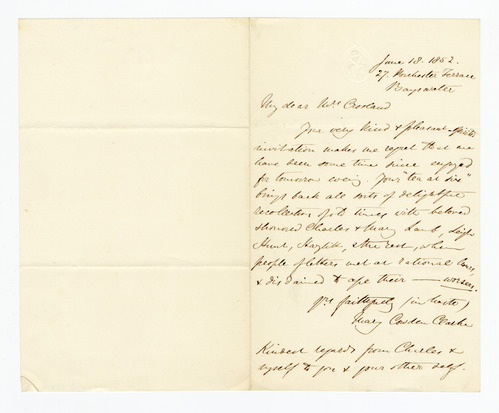 June 18. 1852.
27. Porchester Terrace
Bayswater
My dear Mrs Crosland
Your very kind & pleasant-spirited
invitation makes me regret that we
have been some time since engaged
for tomorrow eveng. Your "tea at six"
brings back all sorts of delightful
recollection of old times with beloved
& honored Charles & Mary Lamb, Leigh
Hunt, Hazlitt, & the rest, when
people of letters met at rational hours,
& disdained to ape their — worsers.
Yrs faithfully (in haste)
Mary Cowden Clarke
Kindest regards from Charles &
myself to you & your other self.